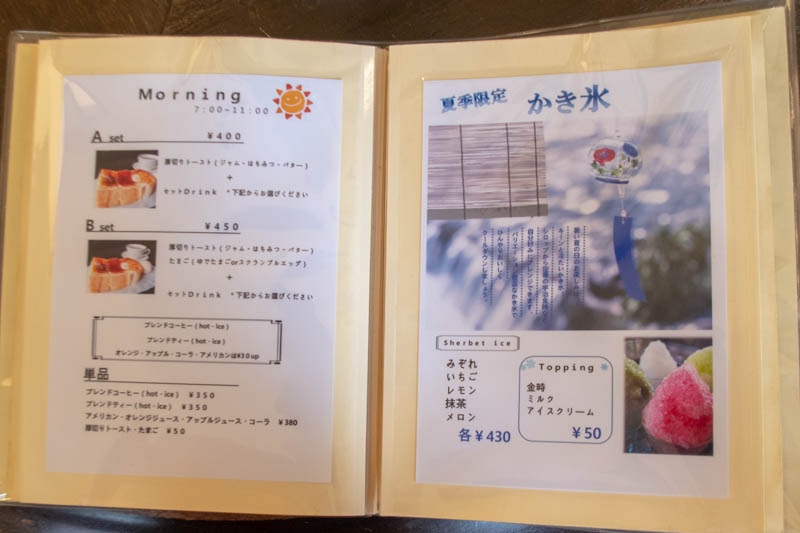 Morning
7:00~11:00
A set ￥400
厚切りトースト(ジャム・はちみつ・バター)
+
セットDrink *下記からお選びください
B set ￥450
厚切りトースト(ジャム・はちみつ・バター)
たまご(ゆでたまごorスクランブルエッグ)
+
セットDrink *下記からお選びください
ブレンドコーヒー(hot・ice)
ブレンドティー(hot・ice)
オレンジ・アップル・コーラ・アメリカンは¥30up
単品
ブレンドコーヒー(hot・ice) ￥350
ブレンドティー(hot・ice) ￥350
アメリカン・オレンジジュース・アップルジュース・コーラ ￥380
厚切りトースト・たまご ￥50
夏季限定 かき氷
暑い夏の日のお楽しみ…
キーンと冷たいかき氷
自分好みにアレンジできます
ひんやりおいしく
クールダウンしましょう。
Sherbet ice
みぞれ
いちご
レモン
抹茶
メロン
各￥430
Topping
金時
ミルク
アイスクリーム
￥50